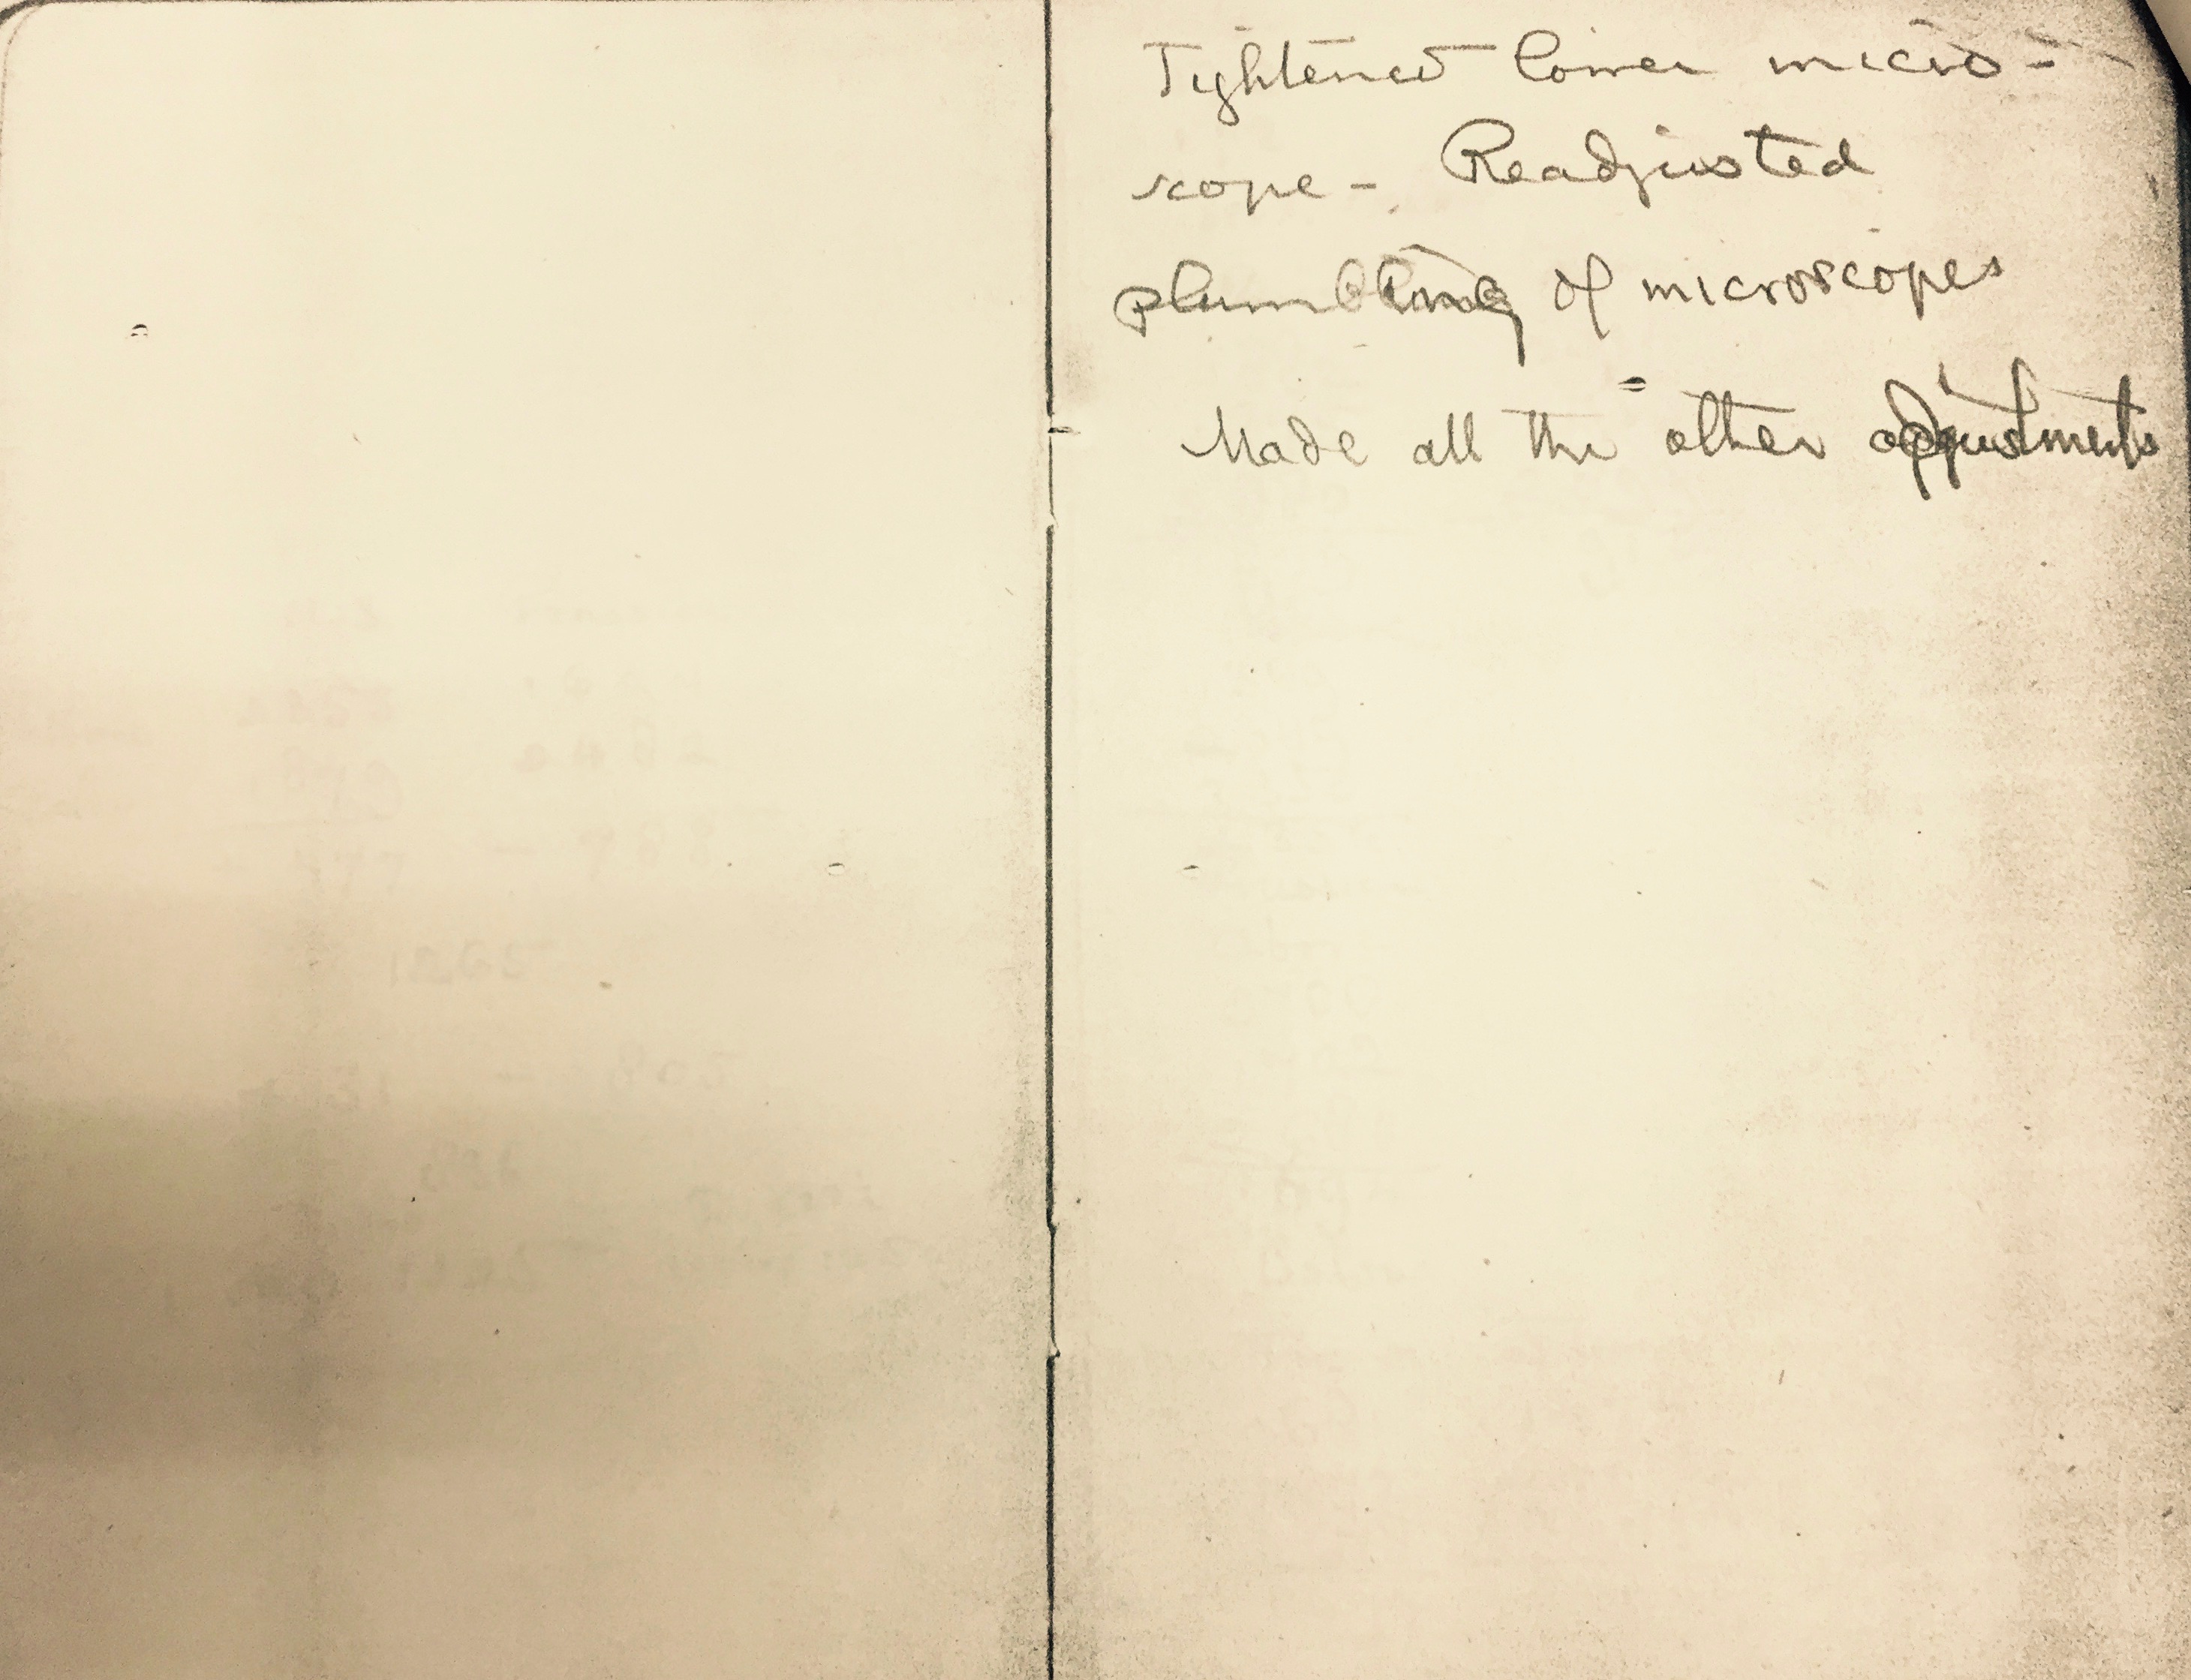 Tightened lower micro-
scope - Readjusted
plumbing of microscopes
Made all the other adjustments